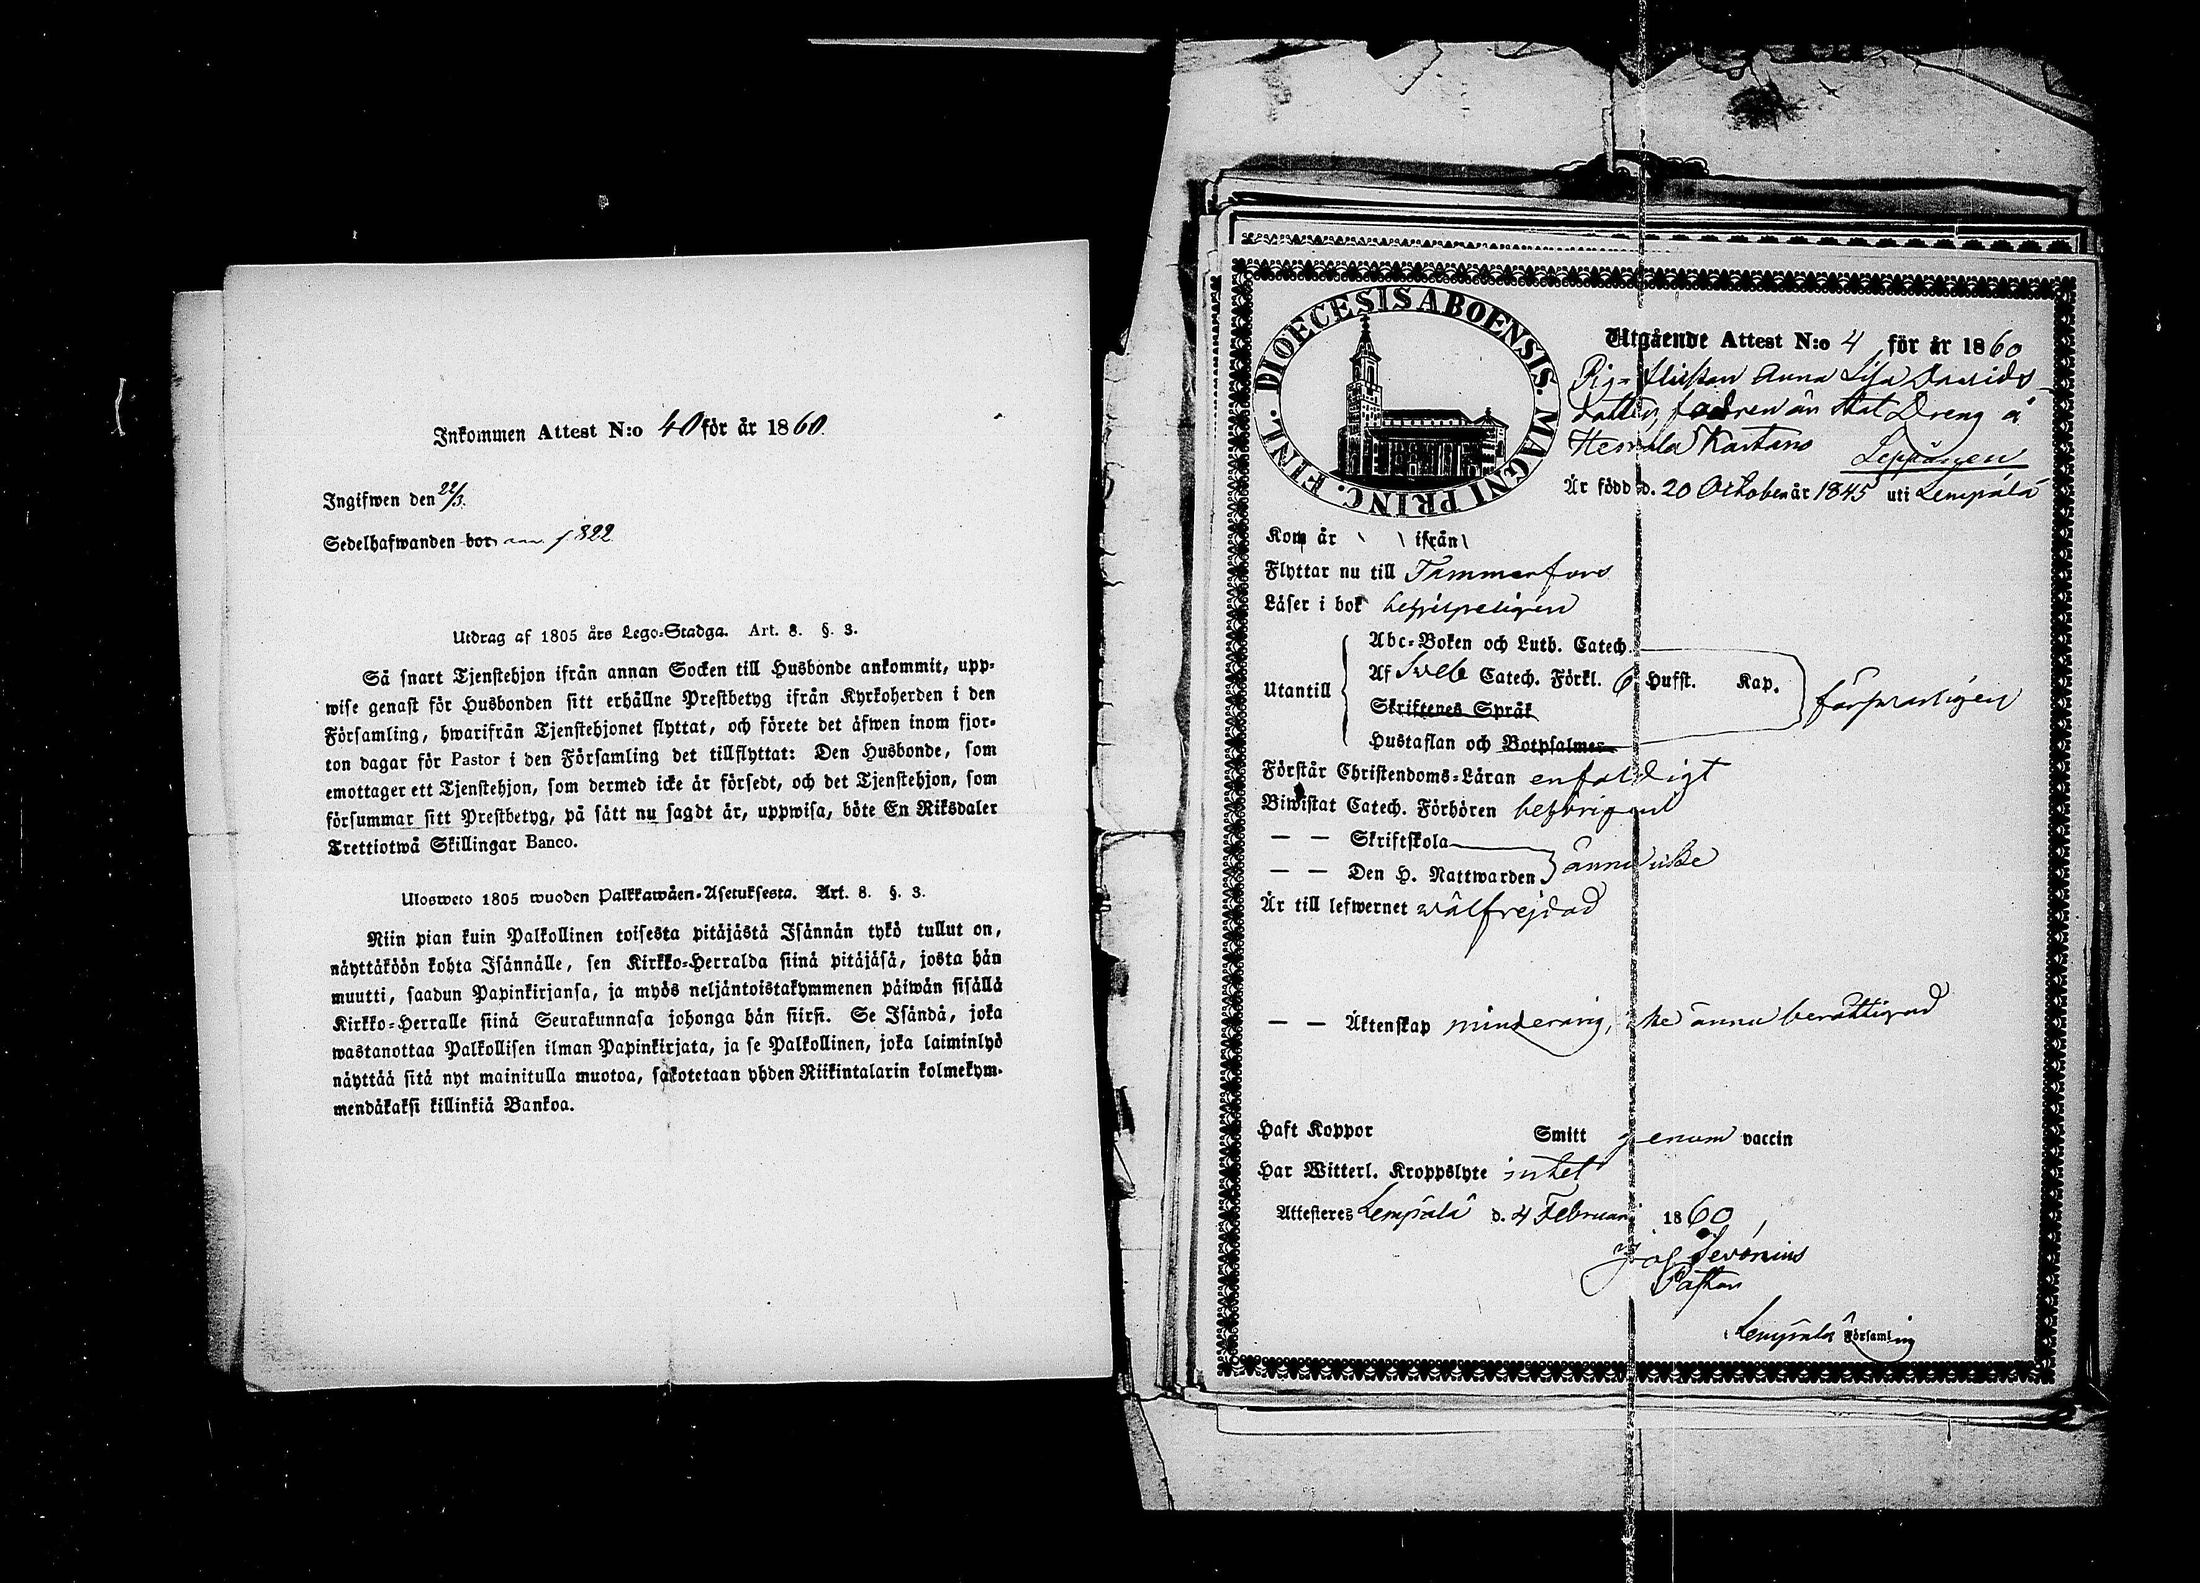 Inkommen Attest N:o 40 för år 1860.
Ingifwen den 22/3.
Sedelhafwanden bor 1822
Utdrag af 1805 års Lego-Stadga. Art. 8. §. 3.
Så snart Tjenstehjon ifrån annan Socken till Husbonde ankommit, upp-
wise genast för Husbonden sitt erhållne Prestbetyg ifrån Kyrkoherden i den
Församling, hwarifrån Tjenstehjonet flyttat, och förete det äfwen inom fjor-
ton dagar för Pastor i den Församling det tillflyttat: Den Husbonde, som
emottager ett Tjenstehjon, som dermed icke är försedt, och det Tjenstehjon, som
försummar sitt Prestbetyg, på sätt nu sagdt är, uppwisa, böte En Riksdaler
Trettiotwå Skillingar Banco.
Ulosweto 1805 wuoden Palkkawäen-Asetuksesta. Art. 8. §. 3.
Niin pian kuin Palkollinen toisesta pitäjästä Isännän tykö tullut on,
näyttäköön kohta Isännälle, sen Kirkko-Herralda siinä pitäjäsä, josta hän
muutti, saadun Papinkirjansa, ja myös neljäntoistakymmenen päiwän sisällä
Kirkko-Herralle siinä Seurakunnasa johonga hän siirsi. Se Isändä, joka
wastanottaa Palkollisen ilman Papinkirjata, ja se Palkollinen, joka laiminlyö
näyttää sitä nyt mainitulla muotoa, sakotetaan yhden Riikintalarin kolmekym-
mendäkaksi killinkiä Bankoa.
DIOECESIS ABOENSIS. MAGNI PRINC. FINL.
Utgående Attest N:o 4 för år 1860
Pig-flickan Anna Lisa Davids-
dotter, fadren än Stat Dreng å
Hervala Kartano
Leppänen
Är född d. 20 October år 1845 uti Lempälä
Kom år ifrån
Flyttar nu till Tammerfors
Läser i bok
Abc-Boken och Luth. Catech.
Utantill Af Sveb Catech. Förkl. 6 Hufst. Kap. försvarligen
Skriftenes Språk
Hustaflan och Botpsalmer
Förstår Christendoms-Läran enfaldigt
Biwistat Catech. Förhören behörigen
— — Skriftskola
— — Den H. Nattwarden ännu icke
Är till lefwernet wälfrejdad
— — Äktenskap minderårig, icke ännu berättigad
Haft Koppor Smitt genom vaccin
Har Witterl. Kroppslyte intet
Attesteres Lempälä d. 4 Februari 1860
Pastor
i Lempälä Församling